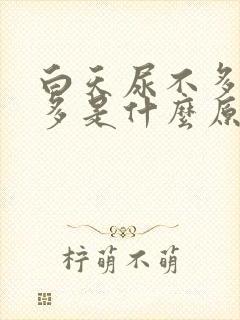 白天尿不多
多是什麼原
柠萌不萌